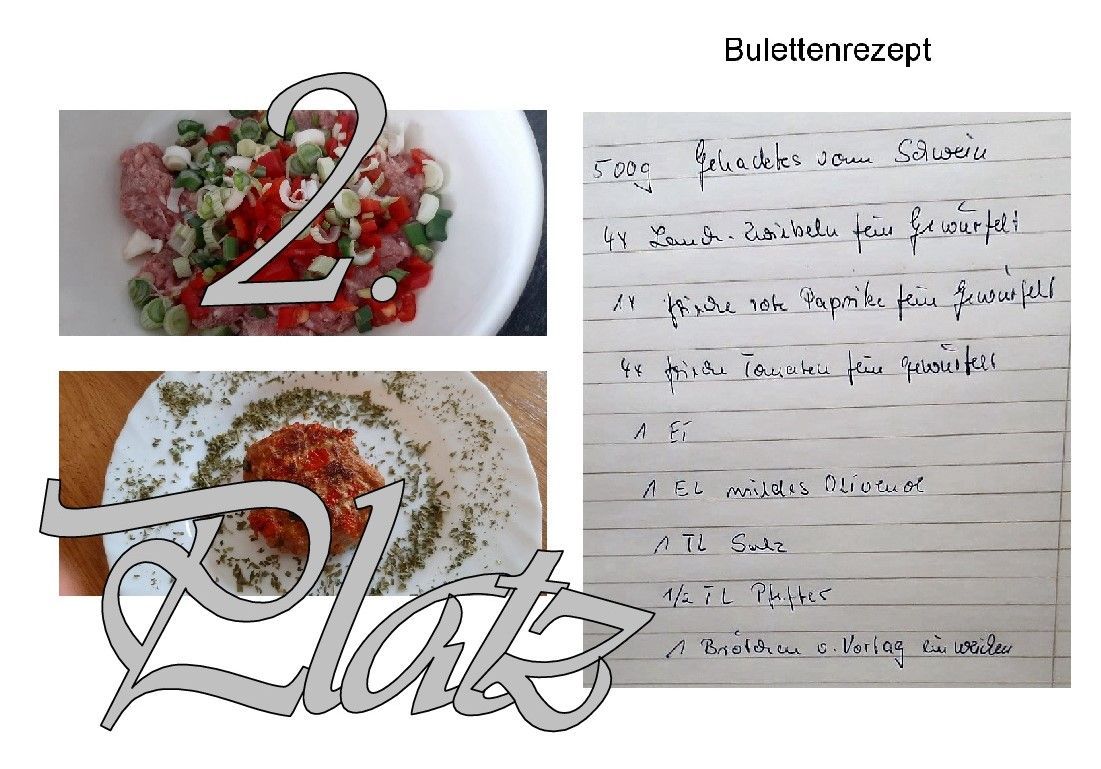 Bulettenrezept
2.
Platz
500g Gehacktes vom Schwein
4x Lauch-Zwiebeln fein Gewürfelt
1x frische rote Paprika fein Gewürfelt
4x frische Tomaten fein gewürfelt
1 Ei
1 EL mildes Olivenöl
1 TL Salz
1/2 TL Pfeffer
1 Brötchen v. Vortag einweichen